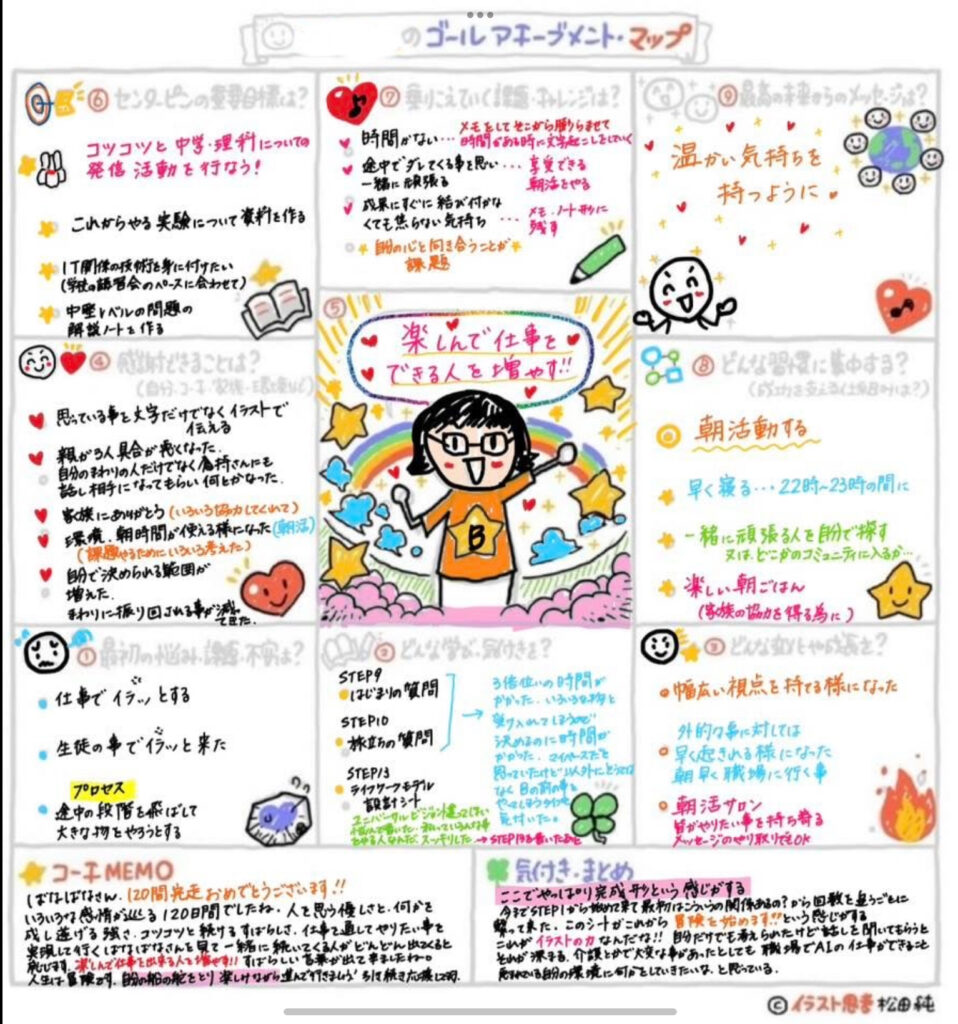 のゴールアチーブメント・マップ
⑥ センターピンの重要目標は?
コツコツと中学・理科についての
発信活動を行なう!
これからやる実験について資料を作る
IT関係の技術を身に付けたい
(学校の講習会のペースに合わせて)
中堅レベルの問題の
解説ノートを作る
⑦ 乗りこえていく課題・チャレンジは?
時間がない… メモをしてそこから膨らませて
時間がある時に文字起こしをしていく
途中でダレてくる事を思い… 享受できる
一緒に頑張る 朝活をやる
成果にすぐに結び付かな
くても焦らない気持ち … メモ・ノート形に
残す
自分の心と向き合うことが
課題
⑨ 最高の未来からのメッセージは?
温かい気持ちを
持つように
④ 感謝できることは?
(自分・コーチ・家族・環境など)
思っている事を文字だけでなくイラストで
伝える
親がる人具合が悪くなった。
自分のまわりの人だけでなく
話し相手になってもらい何とかなった。
家族にありがとう(いろいろ協力してくれて)
環境、朝時間が使える様になった(朝活)
(課題やるためにいろいろ考えた)
自分で決められる範囲が
増えた。
まわりに振り回される事が減ってきた。
⑤
楽しんで仕事を
できる人を増やす!!
B
⑧ どんな習慣に集中する?
朝活動する
早く寝る…22時~23時の間に
一緒に頑張る人を自分で探す
又は、どこかのコミュニティに入るか…
楽しい朝ごはん
(家族の協力を得る為に)
① 最初の悩み・課題・不安は?
仕事でイラッとする
生徒の事でイラッと来た
プロセス
途中の段階を飛ばして
大きな物をやろうとする
② どんな学び・気付きを?
STEP9
はじまりの質問
STEP10
旅立ちの質問
STEP13
ライフワークモデル
設計シート
3倍位いの時間が
かかった。いろいろな物を
受け入れてしまうので
決めるのに時間が
かかった。マイペースだと
思っていたけど
なく目の前の事を
やってしまうタイプと
気付いた。
→STEP13を書いたあと
③ どんな変化や成長を?
幅広い視点を持てる様になった
外的な事に対しては
早く起きれる様になった
朝早く職場に行く事
朝活サロン
皆がやりたい事を持ち寄る
メッセージのやり取りでもOK
コーチMEMO
しばなばなさん、120間完走おめでとうございます!!
いろいろな感情が巡る120日間でしたね。人を思う優しさと、何かを
成し遂げる強さ、コツコツと続けるすばらしさ、仕事を通してやりたい事を
実現して行くばなばなさんを見て一緒に続いてくる人がどんどん出てくると
感じます。楽しんで仕事を出来る人を増やす!! すばらしい言葉が出て来ましたね。
人生は冒険です。自分の船の舵をとり楽しげながら進んで行きましょう
気付き・まとめ
ここでやっぱり完成形という感じがする
今までSTEP1から始めて来て最初はこういうの関係あるの?から回数を追うごとに
繋って来た。このシートがこれから冒険を始めます!!という感じがする
これがイラストの力なんだな!! 自分だけでも考えられたけど話しを聞いてもらうと
それが深まる。介護とかで大変な事があったとしても職場でAIの仕事ができること
恵まれている自分の環境に何かをしていきたいな、と思っている。
©イラスト思考 松田純